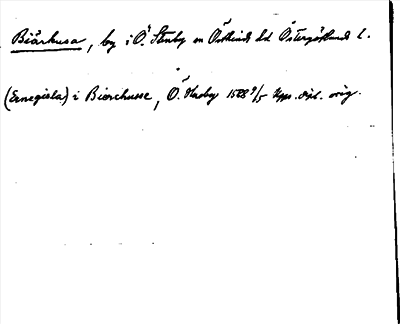 Biärhusa, by i Ö. Stenby sn Östkinds hd Östergötlands l.
(Ernegisla) i Bierchusse, Ö. Stenby 1528 9/5 Upps. dipl. orig.